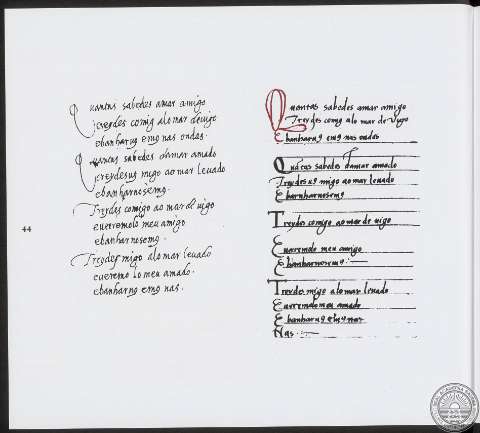 Quantas sabedes amar amigo
treydes comig alo mar de uigo
ebanharnos emos nas ondas.
Quantas sabedes damar amado
treydesus migo ao mar leuado
ebanharnosemos.
Treydes comigo ao mar de uigo
eueeremolo meu amigo
ebanharnosemos.
Treydes migo alo mar leuado
eueeremo lo meu amado.
ebanharnos emos nas.
44
Quantas sabedes amar amigo
Treydes comig alo mar de uigo
Ebanharnos emos nas ondas
Quātas sabedes damar amado
Treydesus migo ao mar leuado
Ebanharnosemos
Treydes comigo ao mar de uigo
Eueeremolo meu amigo
Ebanharnosemos
Treydes migo alo mar leuado
Eueeremolo meu amado
Ebanharnos emos nas
Nas